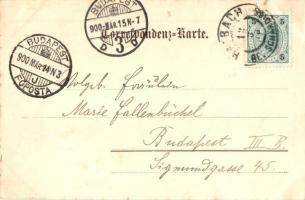 BUDAPEST
900 MÁR. 15. N-7
D 3 D
BUDAPEST
900 MÁR. 14 N 3
J
FŐPOSTA
Correspondenz-Karte.
BACH
5
5
Wolgeb. Fräulein
Marie Fallenbüchel
Budapest III B.
Sigmundgasse 45.